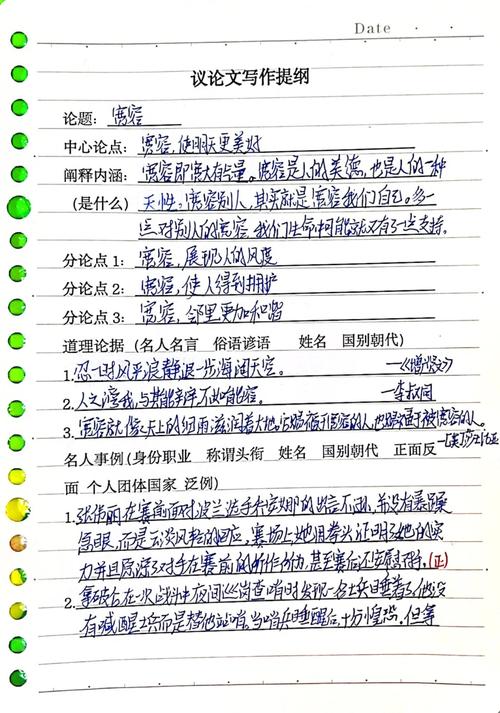 Date
议论文写作提纲
论题：宽容
中心论点：宽容，使明天更美好
阐释内涵：宽容即宽大有气量。宽容是人的美德，也是人的一种
（是什么）天性。宽容别人，其实就是宽容我们自己。多一
点对别人的宽容，我们生命中可能就又有了一点支持。
分论点 1：宽容，展现人的风度
分论点 2：宽容，使人得到拥护
分论点 3：宽容，邻里更加和谐
道理论据（名人名言 俗语谚语 姓名 国别朝代）
1.忍一时风平浪静退一步海阔天空。 —《增贤》
2.人之谤我，与其能辩不如能容。 —李叔同
3.宽容就像天上的细雨滋润着大地。它赐福于宽容的人，也赐福于被宽容的人。
名人事例（身份职业 称谓头衔 姓名 国别朝代 正面反
面 个人团体国家 泛例）
1.张伟丽在赛前面对波兰选手乔安娜的出言不逊，并没有暴躁
急眼，而是云淡风轻的回应，赛场上她用拳头证明了她的实
力并且原谅了对手在赛前的所作所为，甚至赛后还安慰对方。（正）
2.拿破仑在一次战斗中夜间巡岗查哨时发现一名士兵睡着了，他没
有喊醒士兵而是替他站哨，当哨兵睡醒后，十分惶恐，但拿